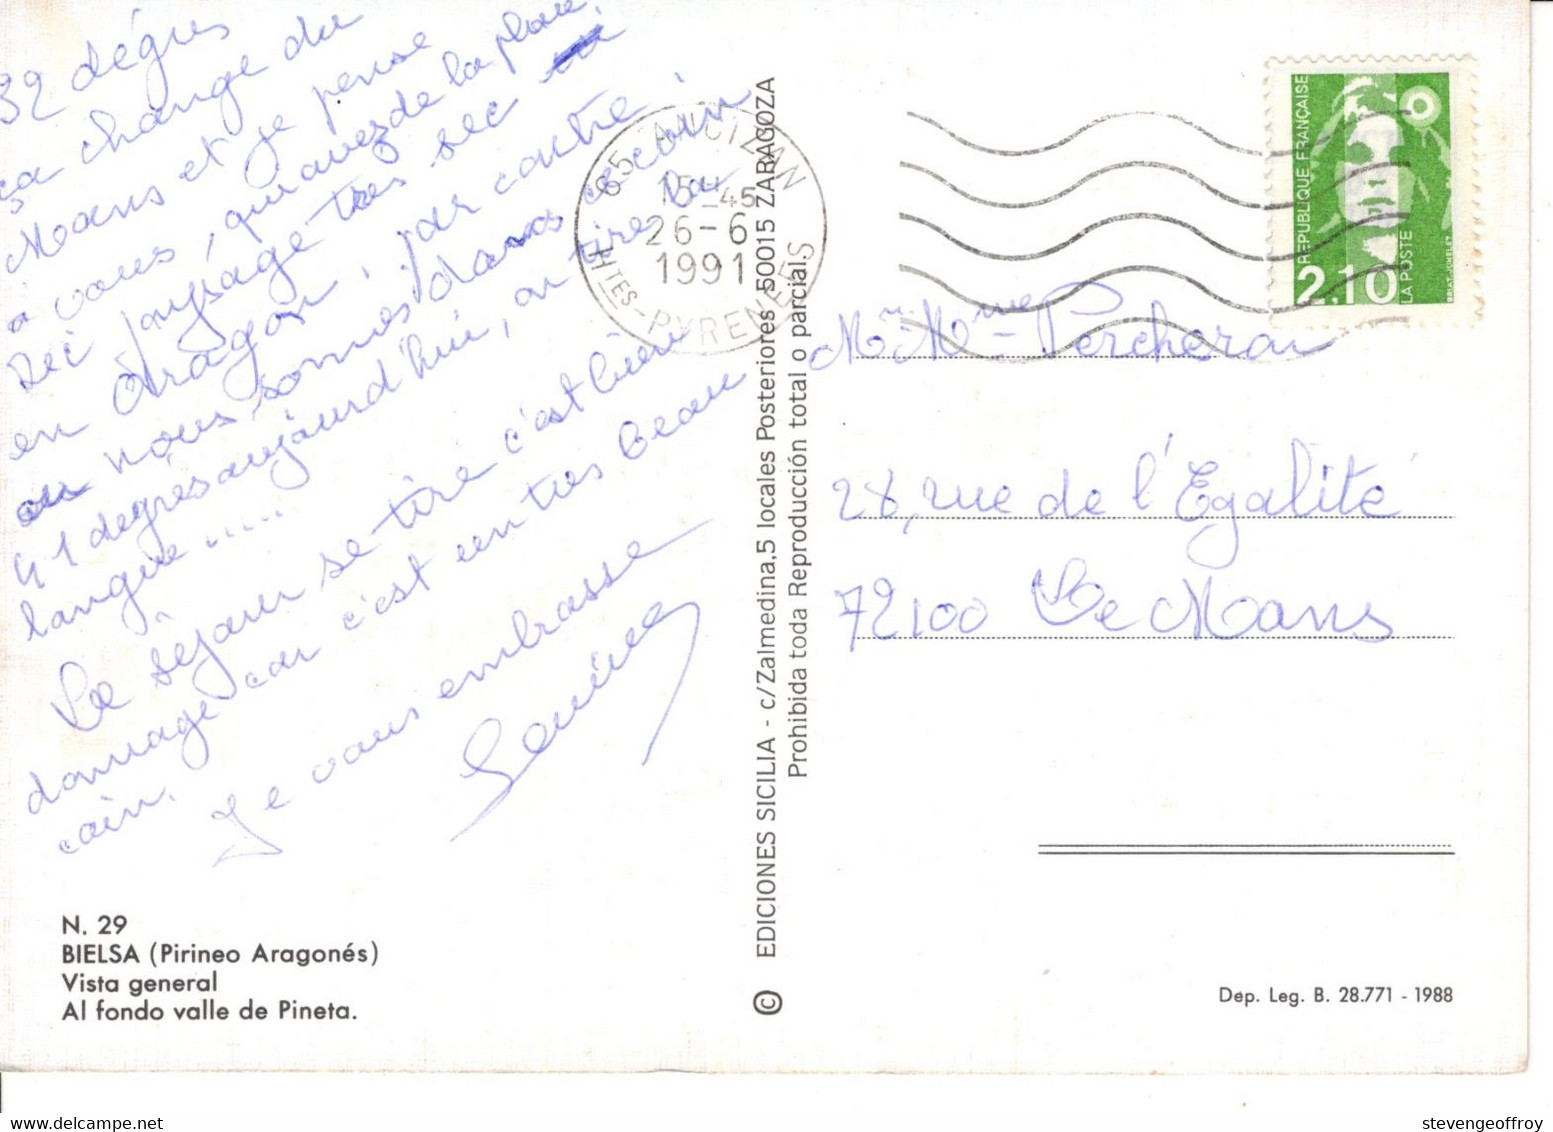 32 dégres
ça change du
Mans et je pense
à vous, qui avez de la pluie.
Ici paysage très sec
en Aragon, par contre
où nous sommes dans ce coin
41 degrés aujourd'hui, on tire la
langue .....
Le séjour se tire c'est bien
domage car c'est un très beau
coin.
Je vous embrasse
N. 29
BIELSA (Pirineo Aragonés)
Vista general
Al fondo valle de Pineta.
© EDICIONES SICILIA - c/Zalmedina,5 locales Posteriores 50015 ZARAGOZA
Prohibida toda Reproducción total o parcial.
65 ANCIZAN
15H45
26-6
1991
HTES-PYRENEES
REPUBLIQUE FRANÇAISE
2,10
LA POSTE
Mr Mme Percheron
28, rue de l'Egalité
72100 Le Mans
Dep. Leg. B. 28.771 - 1988
stevengeoffroy